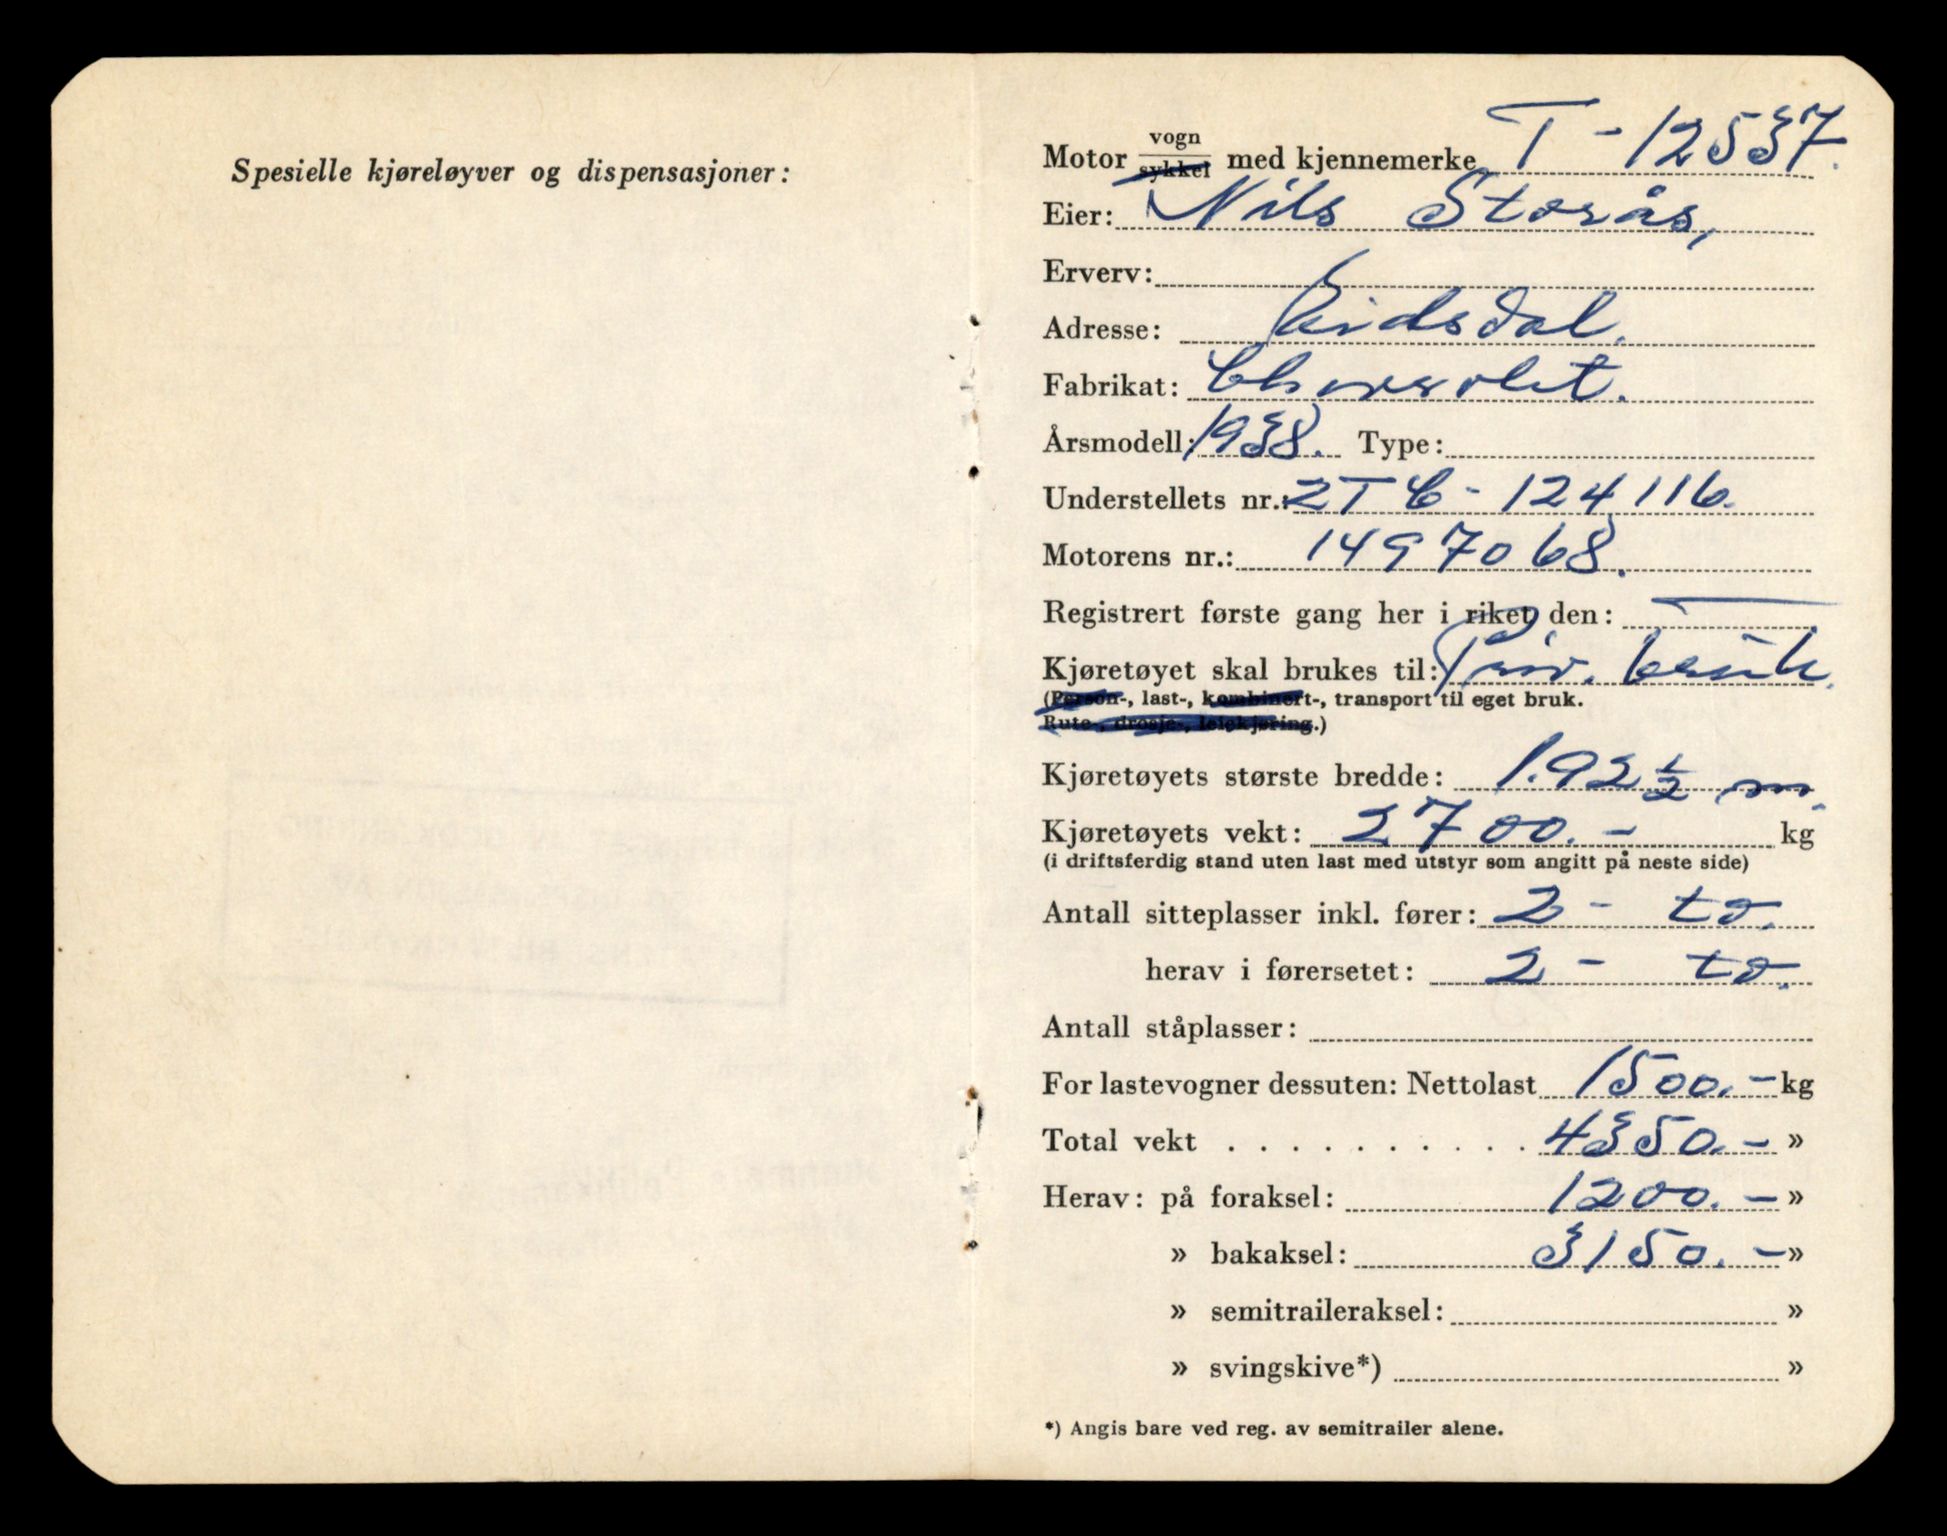 Spesielle kjøreløyver og dispensasjoner:
Motor vogn/sykkel med kjennemerke T-12537.
Eier: Nils Storås,
Erverv:
Adresse: Eidsdal.
Fabrikat: Chevrolet.
Årsmodell: 1938. Type:
Understellets nr.: 2TC-124116.
Motorens nr.: 1497068.
Registrert første gang her i riket den: —
Kjøretøyet skal brukes til: Priv. bruk.
(Person-, last-, kombinert-, transport til eget bruk.
Rute-, drosje-, leiekjøring.)
Kjøretøyets største bredde: 1.92 1/2 m.
Kjøretøyets vekt: 2700.- kg
(i driftsferdig stand uten last med utstyr som angitt på neste side)
Antall sitteplasser inkl. fører: 2 - to.
herav i førersetet: 2 - to.
Antall ståplasser:
For lastevogner dessuten: Nettolast 1500.- kg
Total vekt . . . . . . . . . . 4350.- »
Herav: på foraksel: 1200.- »
» bakaksel: 3150.- »
» semitraileraksel: »
» svingskive*) »
*) Angis bare ved reg. av semitrailer alene.